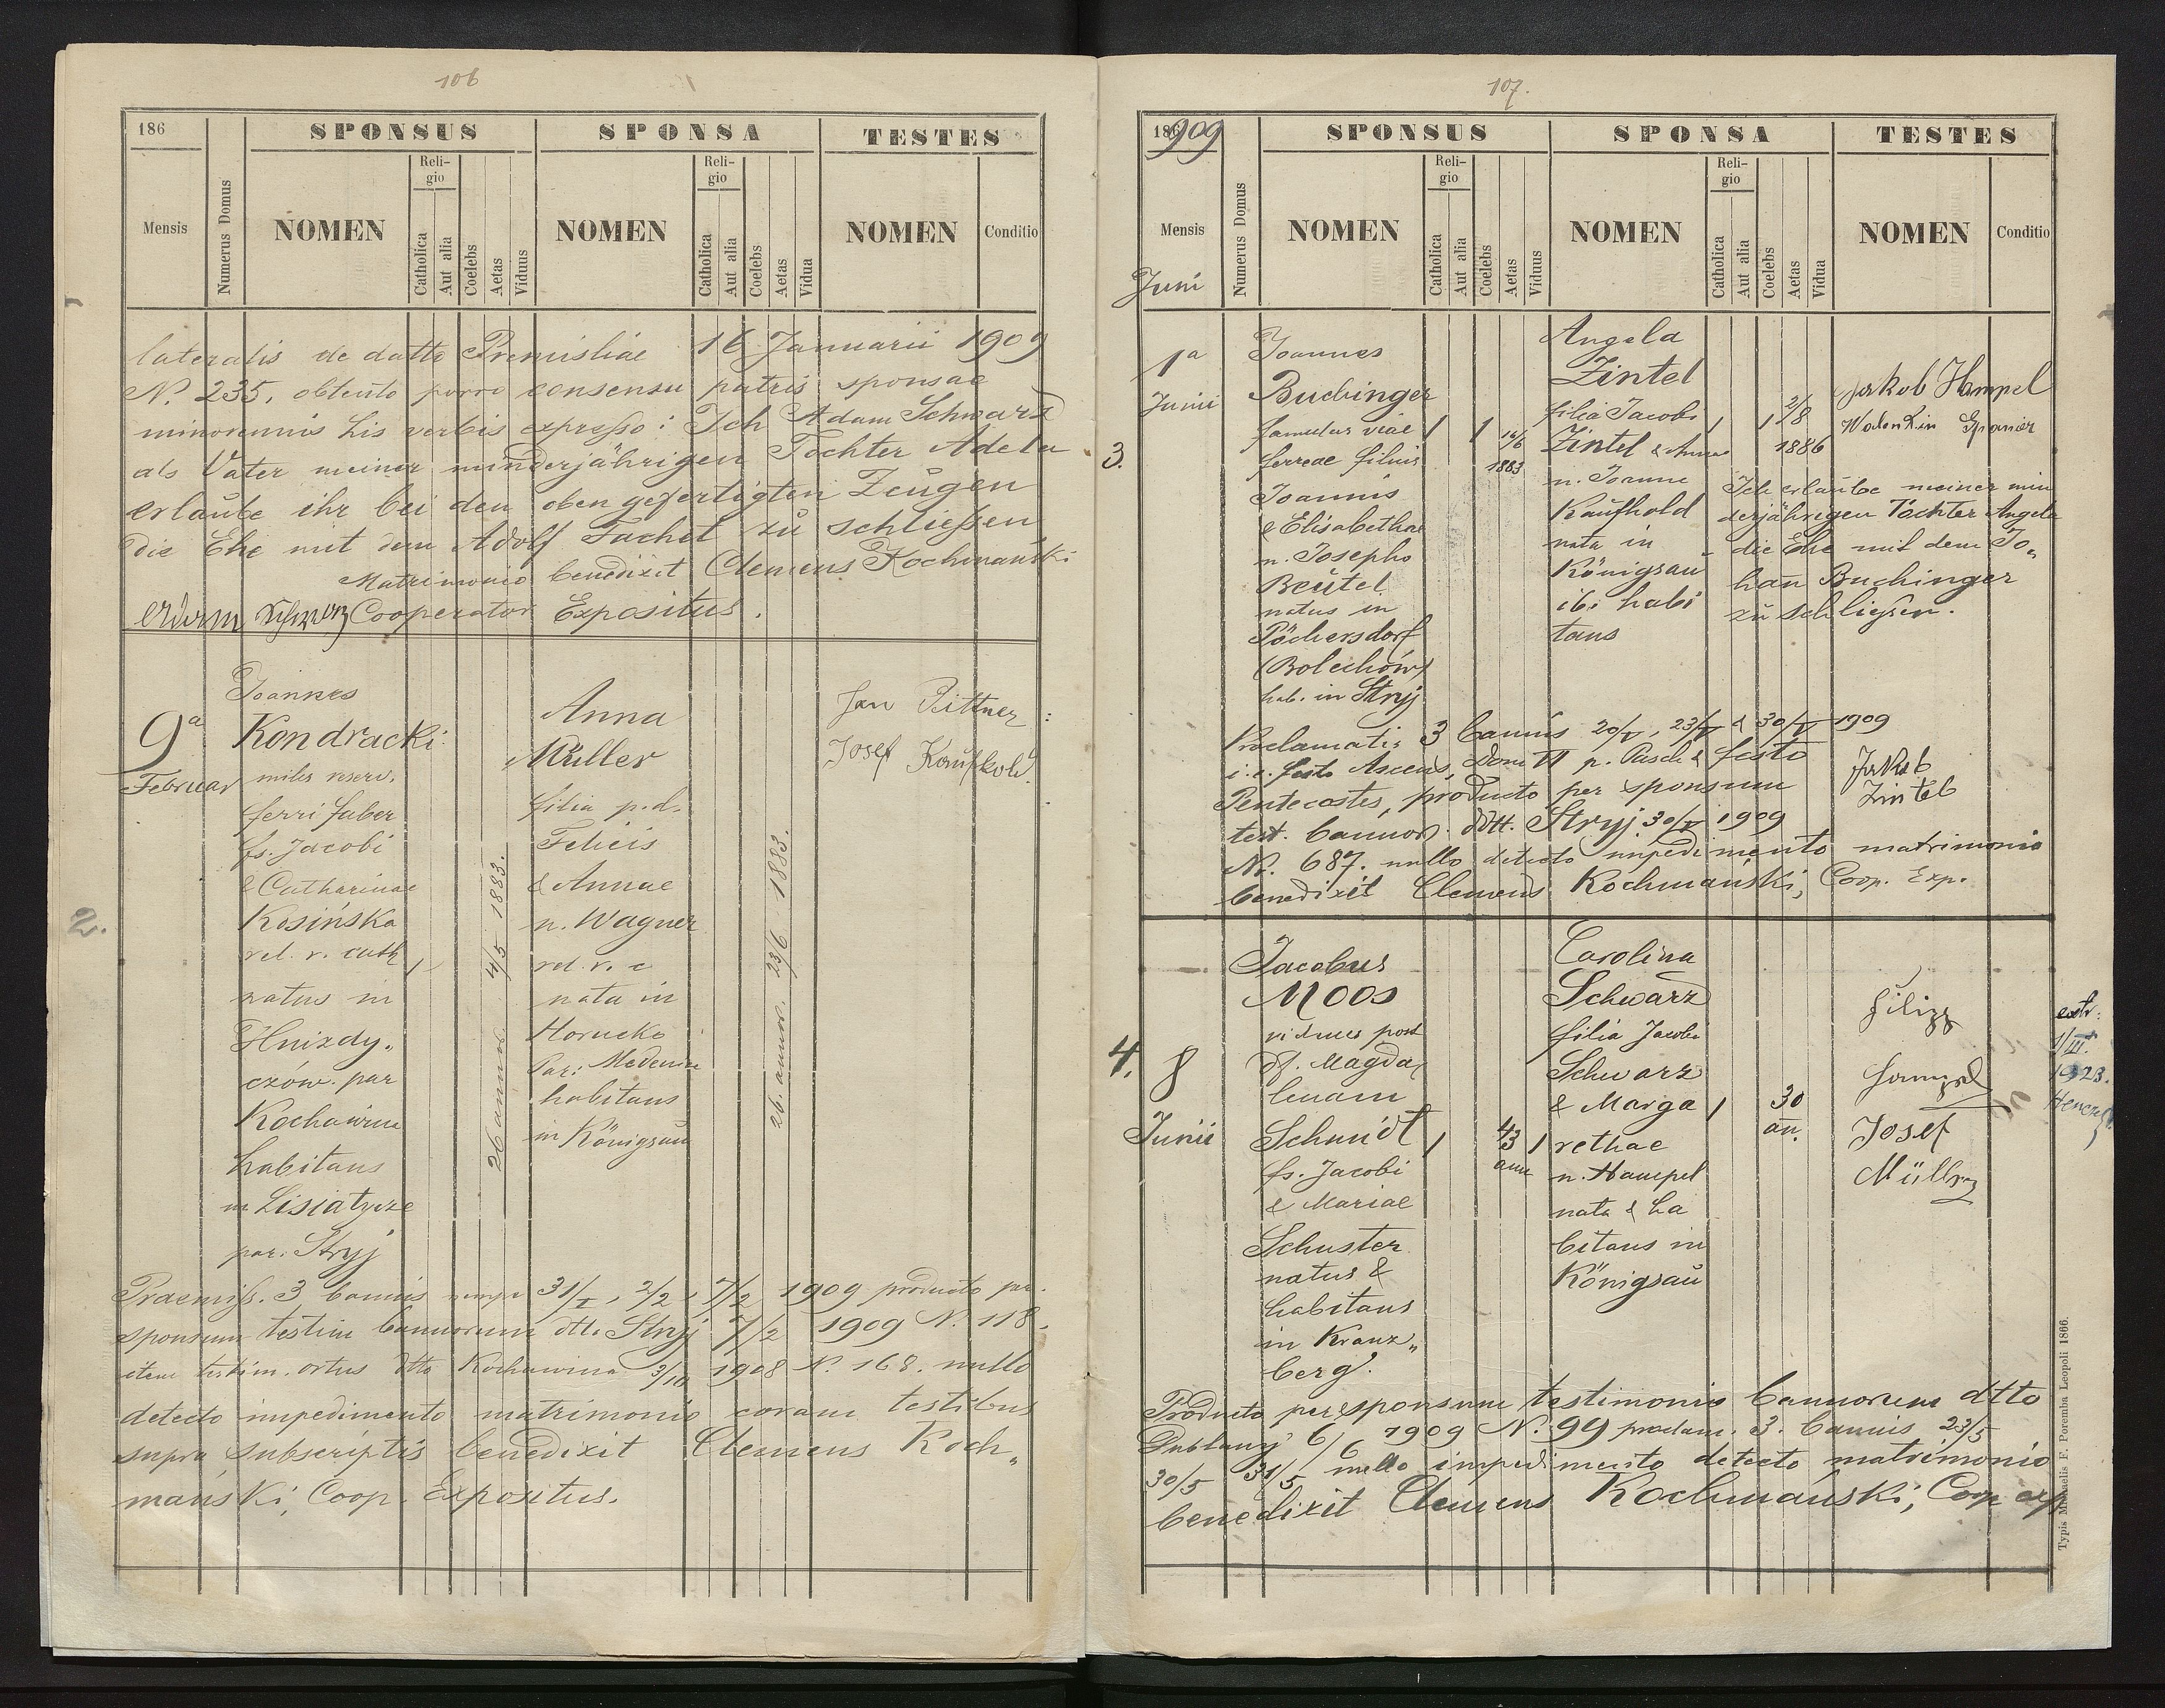 106
186
SPONSUS
SPONSA
TESTES
Mensis
Numerus Domus
NOMEN
Reli-
gio
Catholica
Aut alia
Coelebs
Aetas
Viduus
NOMEN
Reli-
gio
Catholica
Aut alia
Coelebs
Aetas
Vidua
NOMEN
Conditio
lateralis de datto Premisliae 16 Januarii 1909
N. 235, obtento porro consensu patris sponsae
minorennis his verbis expresso: Ich Adam Schwarz
als Vater meiner minderjährigen Tochter Adela
erlaube ihr bei den oben gefertigten Zeugen
die Ehe mit dem Adolf Tachet zu schließen
Matrimonio benedixit Clemens Kochmański
Adam Schwarz Cooperator Expositus.
2.
9a
Februar
Joannes
Kondracki
miles reserv.
ferri faber
fs. Jacobi
& Catharinae
Kosińska
rel. r. cath
natus in
Hnizdy„
czów. par
Kochawina
habitans
in Lisiatycze
par. Stryj
26 annor. 4/5 1883.
Anna
Müller
filia p.d.
Felicis
& Annae
n. Wagner
rel. r. c
nata in
Horucko
Par: Medenice
habitans
in Königsau
26. annor. 23/6 1883.
Jan Bittner
Josef Kaufhold
Praemiss. 3 bannis nempe 31/I, 2/2, 7/2 1909 producto per
sponsum testim bannorum dtto Stryj 7/2 1909 N. 118.
item testim. ortus dtto Kochawina 3/10 1908 N. 168. nullo
detecto impedimento matrimonio coram testibus
supra subscriptis benedixit Clemens Koch„
mański, Coop. Expositus.
107.
186 909
SPONSUS
SPONSA
TESTES
Mensis
Juni
Numerus Domus
NOMEN
Reli-
gio
Catholica
Aut alia
Coelebs
Aetas
Viduus
NOMEN
Reli-
gio
Catholica
Aut alia
Coelebs
Aetas
Vidua
NOMEN
Conditio
3.
1a
Junii
Joannes
Buchinger
famulus viae
ferreae filius
Joannis
& Elisabethae
n. Josepho
Beutel
natus in
Pöchersdorf
(Bolechów)
hab. in Stryj
1 1 14/6
1883
Angela
Zintel
filia Jacobi
Zintel & Annae
n. Joanne
Kaufhold
nata in
Königsau
ibi habi
tans
1 1 2/8
1886
Jakob Hampel
Walentin Spaner
Ich erlaube meiner min
derjährigen Tochter Angela
die Ehe mit dem Jo„
han Buchinger
zu schließen.
Jakob
Zintel
Proclamatis 3 bannis 20/V, 23/V & 30/V 1909
i.e. festo Ascens, Dom VI p. Pasch & festo
Pentecostes, producto per sponsum
test. bannor. dtt. Stryj 30/V 1909
N. 687. nullo detecto impedimento matrimonio
benedixit Clemens Kochmański, Coop. Exp.
4.
8
Junii
Jacobus
Moos
viduus post
df. Magda
lenam
Schmidt
fs. Jacobi
& Mariae
Schuster
natus &
habitans
in Kranz„
berg.
1 43 1
ann
Carolina
Schwarz
filia Jacobi
Schwarz
& Marga
rethae
n. Hampel
nata & ha
bitans in
Königsau
1 30
an.
Filipp
Hampel
Josef
Müller
extr:
1/III.
1923.
Producto per sponsum testimonio bannorum dtto
Dublany 6/6 1909 N. 99 proclam. 3. bannis 23/5
30/5 31/5 nullo impedimento detecto matrimonio
benedixit Clemens Kochmański, Coop exp
Typis Michaelis F. Poremba Leopoli 1866.